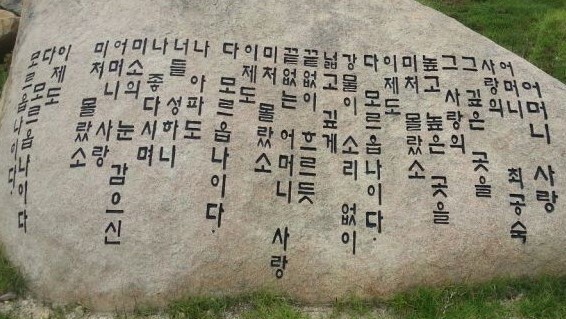 어머니 사랑
최공숙
어머니
사랑의
그 깊은 곳을
그 사랑의
높고 높은 곳을
미처 몰랐소
이제도
다 모르옵나이다.
강물이 소리 없이
넓고 깊게
끝없이 흐르듯
끝없는 어머니 사랑
미처 몰랐소
이제도
다 모르옵나이다.
나 아파도
너들 성하니
나 좋다시며
미소의 눈 감으신
어머니 사랑
미처 몰랐소
이제도
다 모르옵나이다
모르옵나이다.